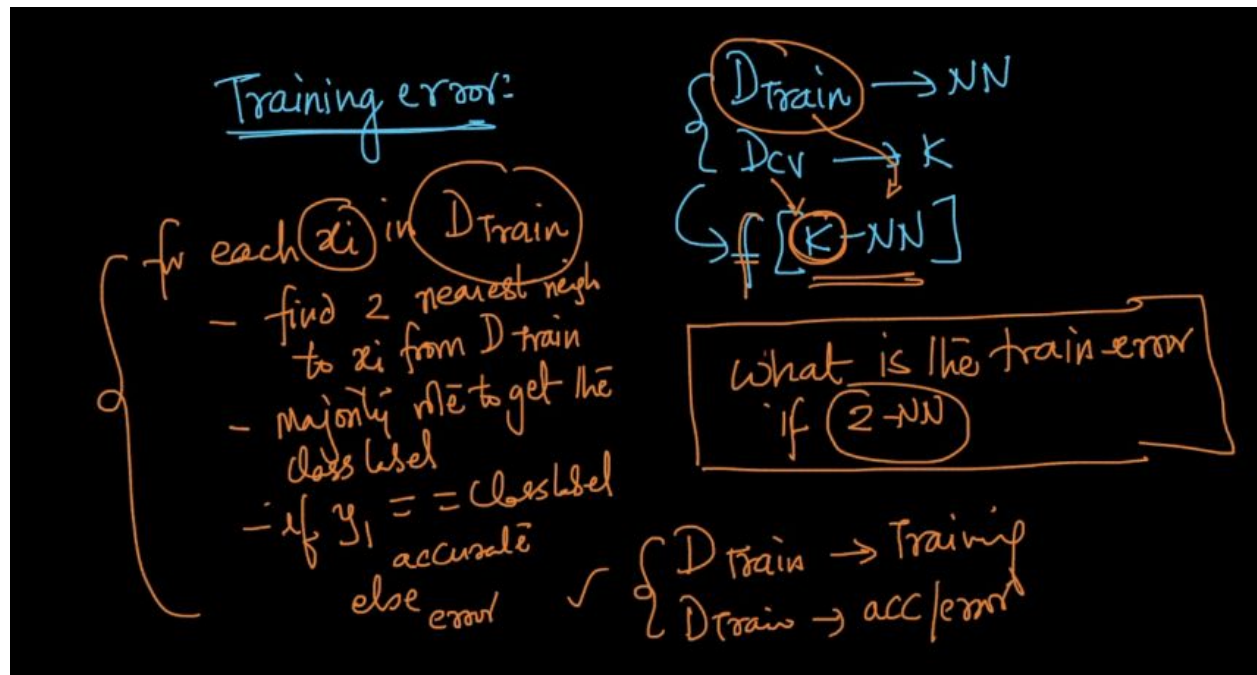 Training error:
for each xi in D Train
- find 2 nearest neigh
to xi from D train
- majority vote to get the
class label
- if y1 == Class label
accurate
else error
D Train → NN
D CV → K
f [K-NN]
What is the train error
if 2-NN
✓ { D Train → Training
D Train → acc/error